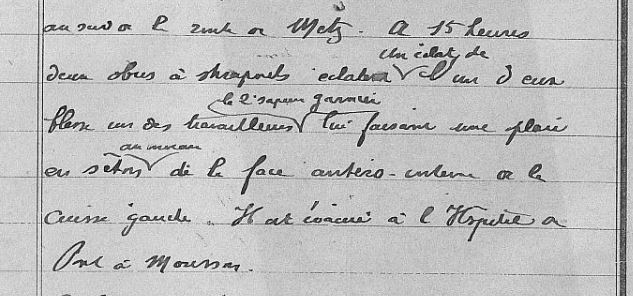 au sud de la route de Metz. A 15 heures
un éclat de
deux obus à shrapnels éclatent l'un d'eux
le 2e sapeur Garnier
blesse un des travailleurs lui faisant une plaie
au niveau
en séton de la face antéro-interne de la
cuisse gauche. Il est évacué à l'Hopital de
Pont à Mousson.